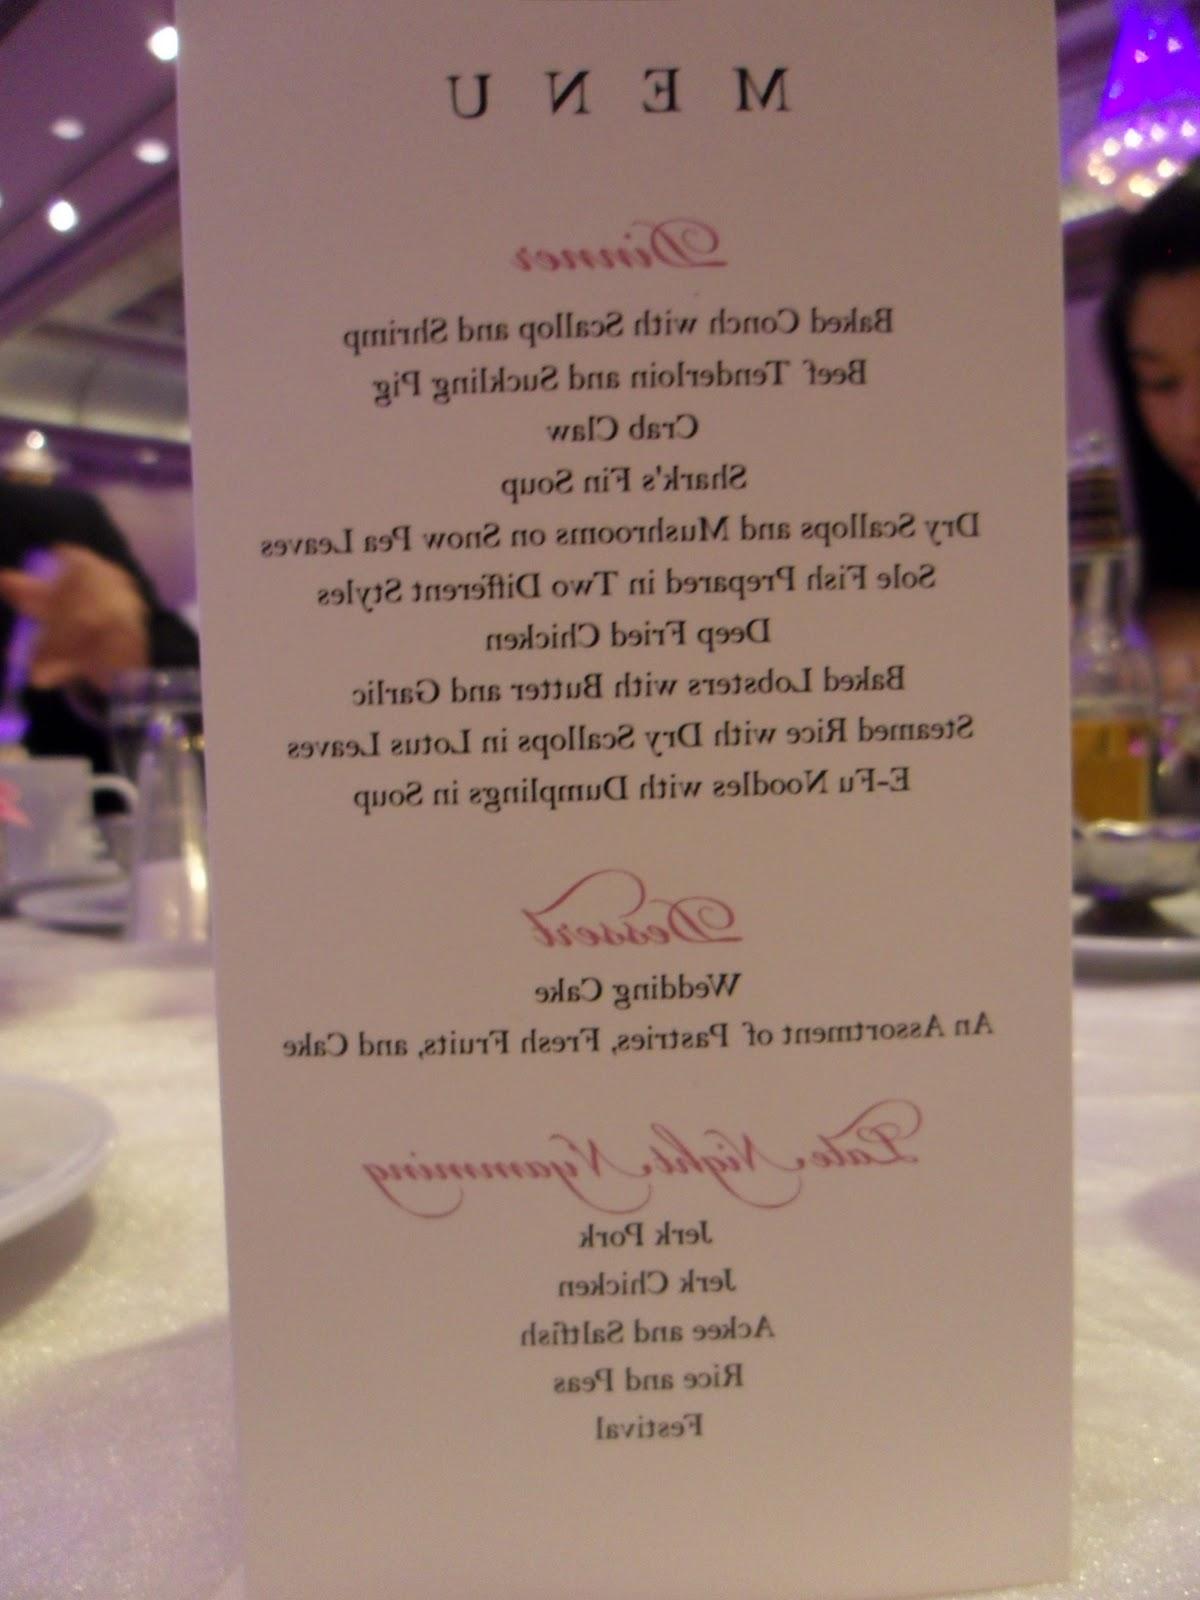 MENU
Dinner
Baked Conch with Scallop and Shrimp
Beef Tenderloin and Suckling Pig
Crab Claw
Shark's Fin Soup
Dry Scallops and Mushrooms on Snow Pea Leaves
Sole Fish Prepared in Two Different Styles
Deep Fried Chicken
Baked Lobsters with Butter and Garlic
Steamed Rice with Dry Scallops in Lotus Leaves
E-Fu Noodles with Dumplings in Soup
Dessert
Wedding Cake
An Assortment of Pastries, Fresh Fruits, and Cake
Late Night Nyamming
Jerk Pork
Jerk Chicken
Ackee and Saltfish
Rice and Peas
Festival